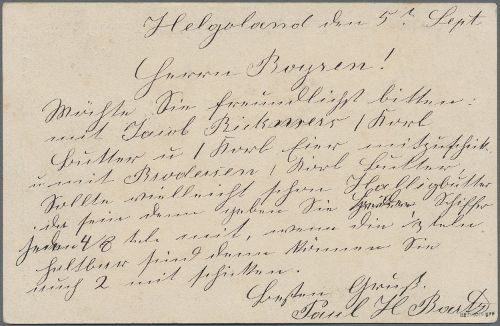 Helgoland den 5t Sept.
Herrn Boysen!
Möchte Sie freundlichst bitten:
mit Jacob Rickmers 1 Korb
Butter u 1 Korb Eier mitzuschick.
u mit Brodersen 1 Korb Butter
Sollte vielleicht schon Halligbutter
da sein dann geben Sie Schiffer
jeden 4/8 tele mit, wenn die 1/8 teln
haltbar sind dann können Sie
auch 2 mit schicken.
Besten Gruß.
Paul H